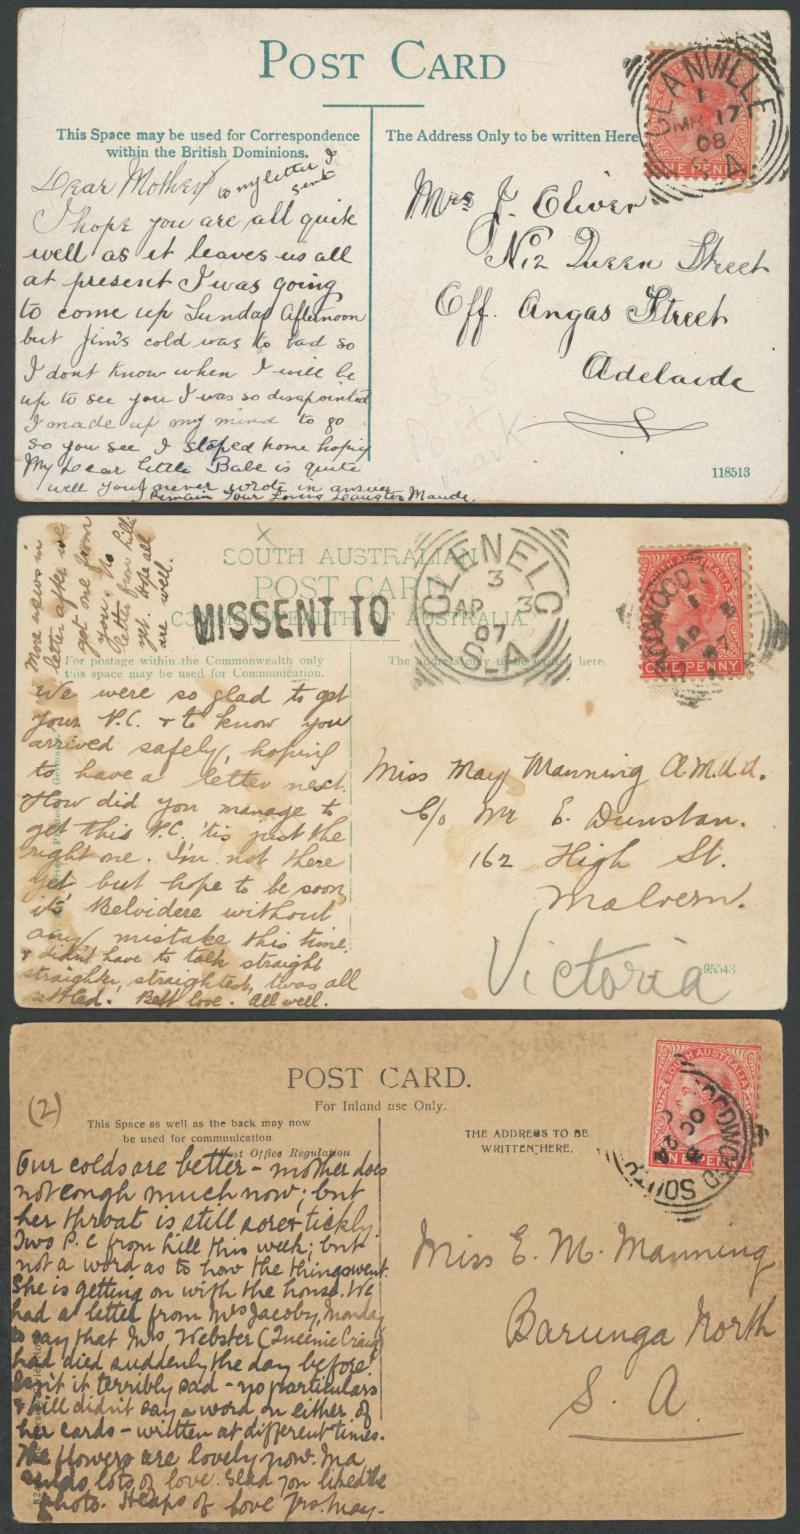 POST CARD
This Space may be used for Correspondence
within the British Dominions.
The Address Only to be written Here
GLANVILLE
1
MR 17
08
S.A
ONE PENNY
Dear Mother
to my letter I
sent
I hope you are all quite
well as it leaves us all
at present I was going
to come up Sunday Afternoon
but Jim's cold was to bad so
I dont know when I will be
up to see you I was so disapointed
I made up my mind to go
so you see I stoped home hoping
My Dear little Babe is quite
well you never wrote in answer
I Remain Your Loving Daughter Maude.
Mrs J. Oliver
No 12 Queen Street
Off. Angas Street
Adelaide
118513
SOUTH AUSTRALIAN
POST CARD
COMMONWEALTH OF AUSTRALIA.
MISSENT TO
GLENELG
3
AP 3
07
S.A
ONE PENNY
For postage within the Commonwealth only
this space may be used for Communication.
The address only to be written here.
More news in
letter after we
got one from
you. No
letter from hill
yet. hope all
are well.
We were so glad to get
your P.C. & to know you
arrived safely, hoping
to have a letter next.
How did you manage to
get this P.C. 'tis just the
right one. I'm not there
yet, but hope to be soon,
it's Belvidere without
any mistake this time.
& didn't have to talk straight
straighter, straightest, twas all
settled. Best love. All well.
Miss May Manning A.M.U.A.
C/o Mr E. Dunstan.
162 High St.
Malvern.
Victoria
95543
POST CARD.
For Inland use Only.
(2)
This Space as well as the back may now
be used for communication.
Post Office Regulation
THE ADDRESS TO BE
WRITTEN HERE.
SOUTH AUSTRALIA
ONE PENNY
OC 24
Our colds are better – mother does
not cough much now; but
her throat is still sore & tickly.
Two P.C from hill this week; but
not a word as to how the things went.
She is getting on with the house. We
had a letter from Mrs Jacoby, Monday
to say that Mrs Webster (Queenie Craig)
had died suddenly the day before.
Isn't it terribly sad – no particulars
& hill didn't say a word on either of
her cards – written at different times.
The flowers are lovely now. Ma
sends lots of love. Glad you liked the
photo. Heaps of love Yrs. May –
Miss E. M. Manning
Barunga North
S. A.